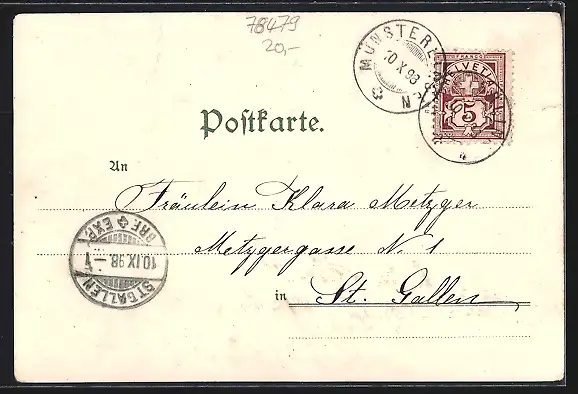 78479
20,-
MÜNSTERLINGEN
10 X 98
HELVETIA
5
Postkarte.
An
Fräulein Klara Metzger
Metzgergasse N. 1
in St. Gallen
BRF. EXP.
10.IX.98.-1
ST. GALLEN